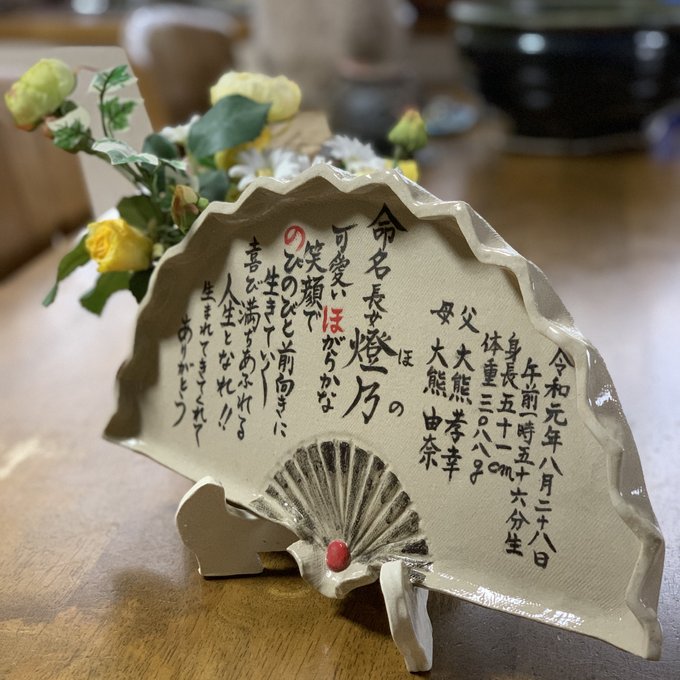 令和元年八月二十八日
午前一時五十六分生
身長五十一cm
体重三〇八八g
父 大熊 孝幸
母 大熊 由奈
命名 長女 燈乃
ほの
可愛いほがらかな
笑顔で
のびのびと前向きに
生きていく
喜び満ちあふれる
人生となれ!!
生まれてきてくれて
ありがとう